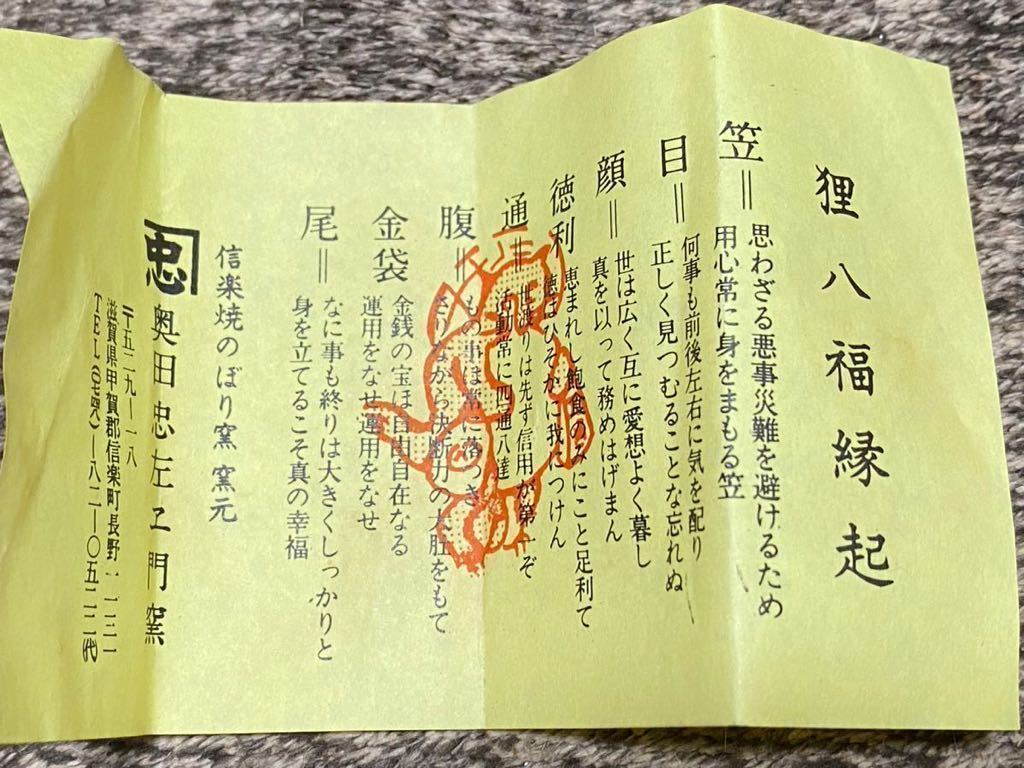 狸八福縁起
笠＝思わざる悪事災難を避けるため
用心常に身をまもる笠
目＝何事も前後左右に気を配り
正しく見つむることな忘れぬ
顔＝世は広く互に愛想よく暮し
真を以って務めはげまん
徳利 恵まれし飽食のみにこと足利て
徳はひそかに我につけん
通＝世渡りは先ず信用が第一ぞ
活動常に四通八達
腹＝もの事は常に落つき
さりながら決断力の大肚をもて
金袋 金銭の宝は自由自在なる
運用をなせ運用をなせ
尾＝なに事も終りは大きくしっかりと
身を立てるこそ真の幸福
信楽焼のぼり窯窯元
忠 奥田忠左ヱ門窯
〒五二九-一八
滋賀県甲賀郡信楽町長野